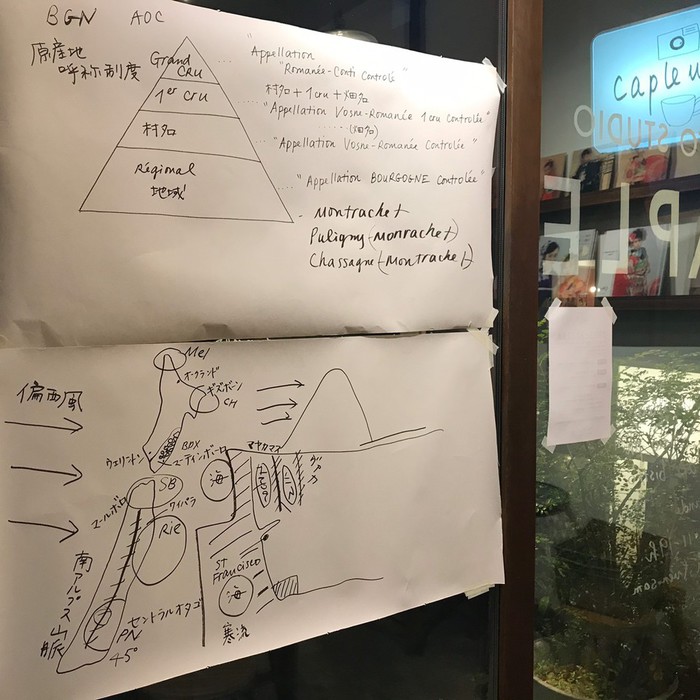 BGN AOC
原産地
呼称制度
Grand
CRU
1er CRU
村名
Régional
地域
"Appellation
"Romanée-Conti Controlée"
村名+1cru+畑名
"Appellation Vosne-Romanée 1cru Controlée"
(畑名)
"Appellation Vosne-Romanée Controlée"
"Appellation BOURGOGNE Controlée"
Montrachet
Puligny (Monrachet)
Chassagne (Montrachet)
偏西風
Mel
オークランド
ギズボーン
CH
BDX
マーティンボーロ
ウェリントン
SB
マールボロ
ワイパラ
Rie
南アルプス山脈
セントラルオタゴ
PN
45°
マヤカマス
海
St
Francisco
海
寒流
capleu
STUDIO